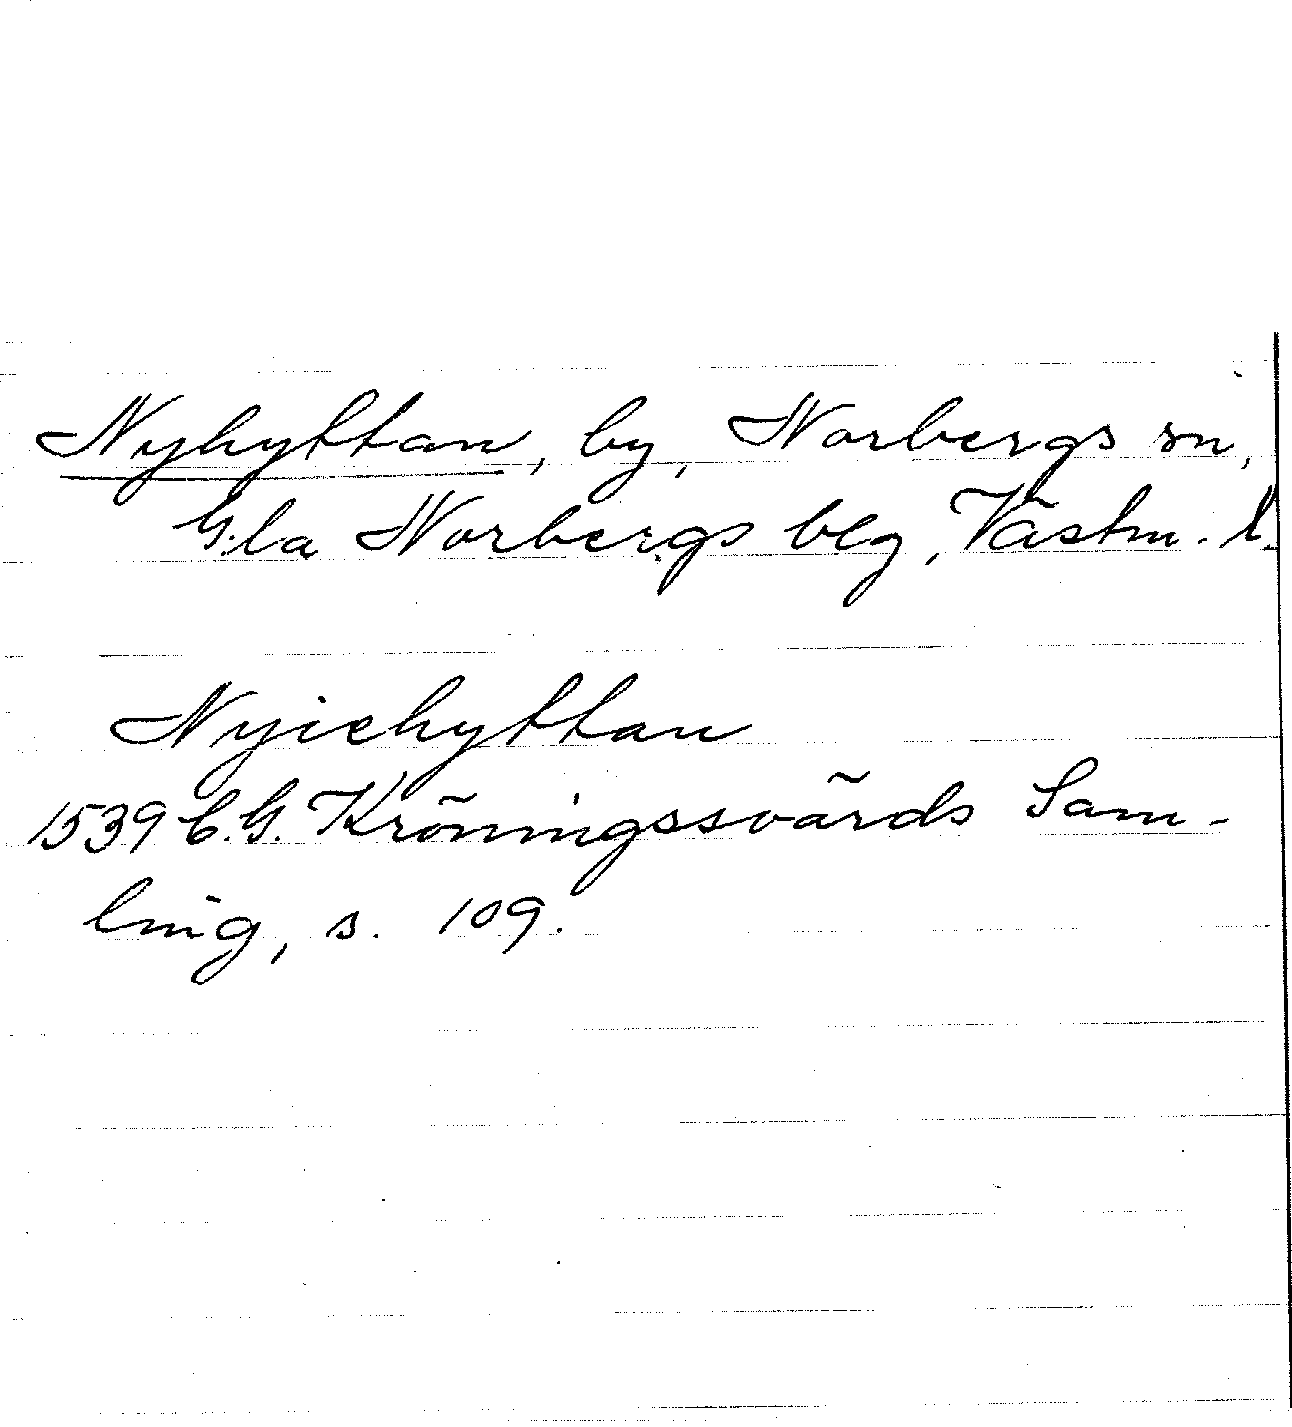 Nyhyttan, by, Norbergs sn,
G:la Norbergs blg, Västm. l.
Nyiehyttan
1539 C.G. Kröningssvärds Sam-
ling, s. 109.